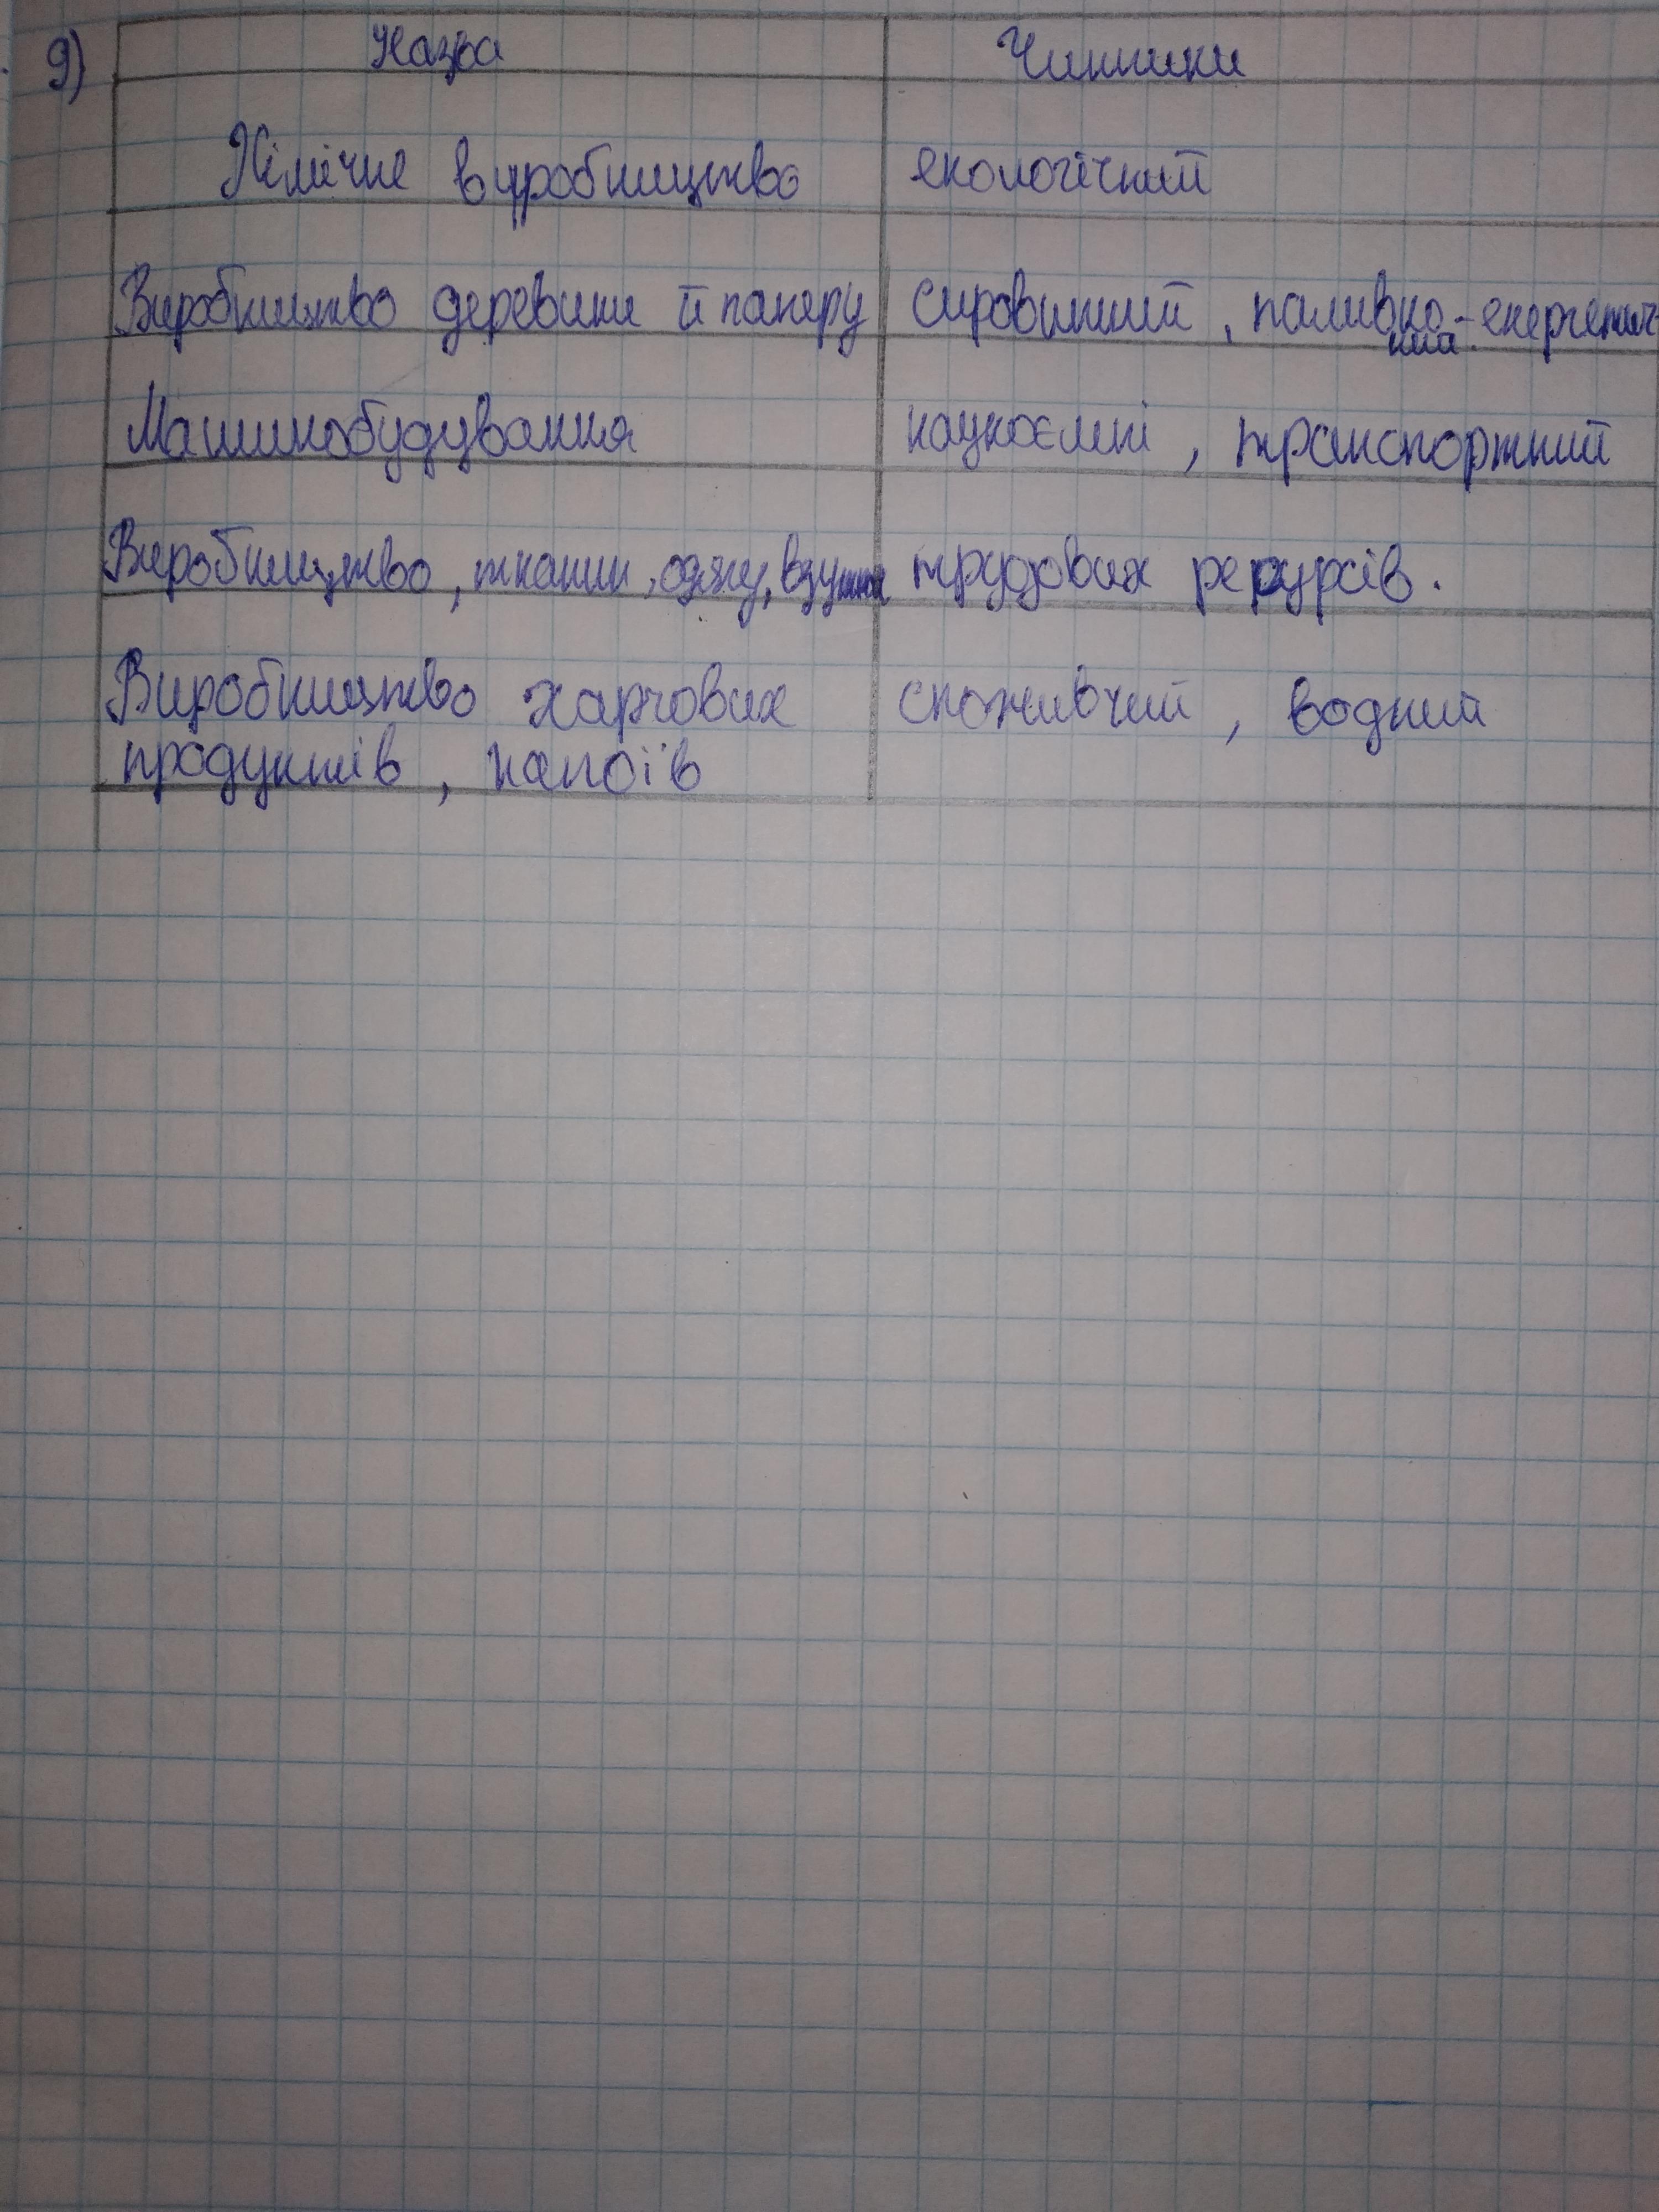 9) Назва Чинники
Хімічне виробництво екологічний
Виробництво деревини й паперу сировинний, паливно-енергетич
ний.
Машинобудування наукоємні, транспортний
Виробництво, тканин, одягу, взуття трудових ресурсів.
Виробництво харчових споживчий, водний
продуктів, напоїв